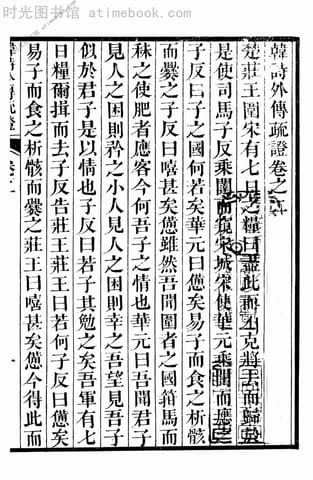 时光图书馆
www.book4time.com
韓詩外傳疏證卷之二
楚莊王圍宋有七日之糧曰盡此而不克將去而歸於
是使司馬子反乘闉而窺宋城宋使華元乘闉而應之
子反曰子之國何若矣華元曰憊矣易子而食之析骸
而爨之子反曰嘻甚矣憊雖然吾聞圍者之國箝馬而
秣之使肥者應客今何吾子之情也華元曰吾聞君子
見人之困則矜之小人見人之困則幸之吾望見吾子
似於君子是以情也子反曰諾子其勉之矣吾軍有七
日糧爾揖而去子反告莊王莊王曰若何子反曰憊矣
易子而食之析骸而爨之莊王曰嘻甚矣憊今得此而
卷二
一